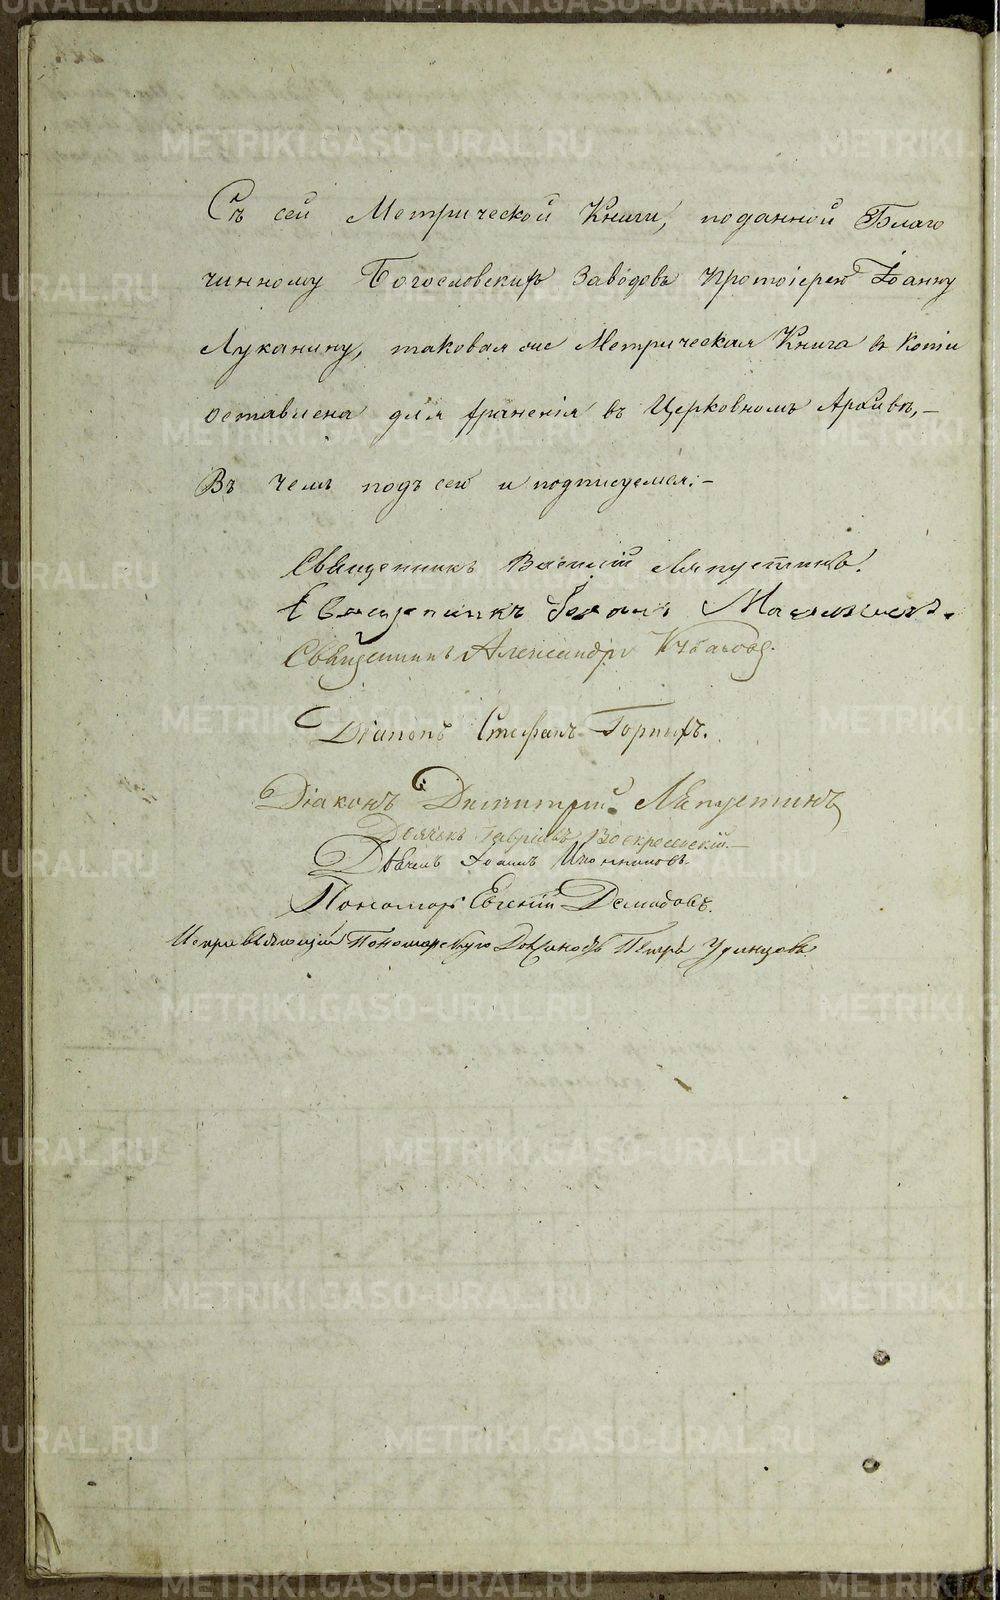 Съ сей Метрической Книги, поданной Благо
чинному Богословскихъ Заводовъ Протоіерею Іоанну
Луканину, таковая же Метрическая Книга в Копіи
оставлена для храненія въ Церковномъ Архивѣ,–
Въ чемъ подъ сей и подписуемся.–
Священникъ Василій Ляпустинъ.
Священникъ Іоаннъ
Священникъ Александръ
Діаконъ Стефанъ Горныхъ.
Діаконъ Димитрий Ляпустинъ
Дьячекъ Гавріилъ Воскресенскій.–
Дьячекъ Іоаннъ Иконниковъ
Пономарь Евгеній Демидовъ.
Исправляющій Пономарскую Должность Петръ Удинцовъ.
METRIKI.GASO-URAL.RU